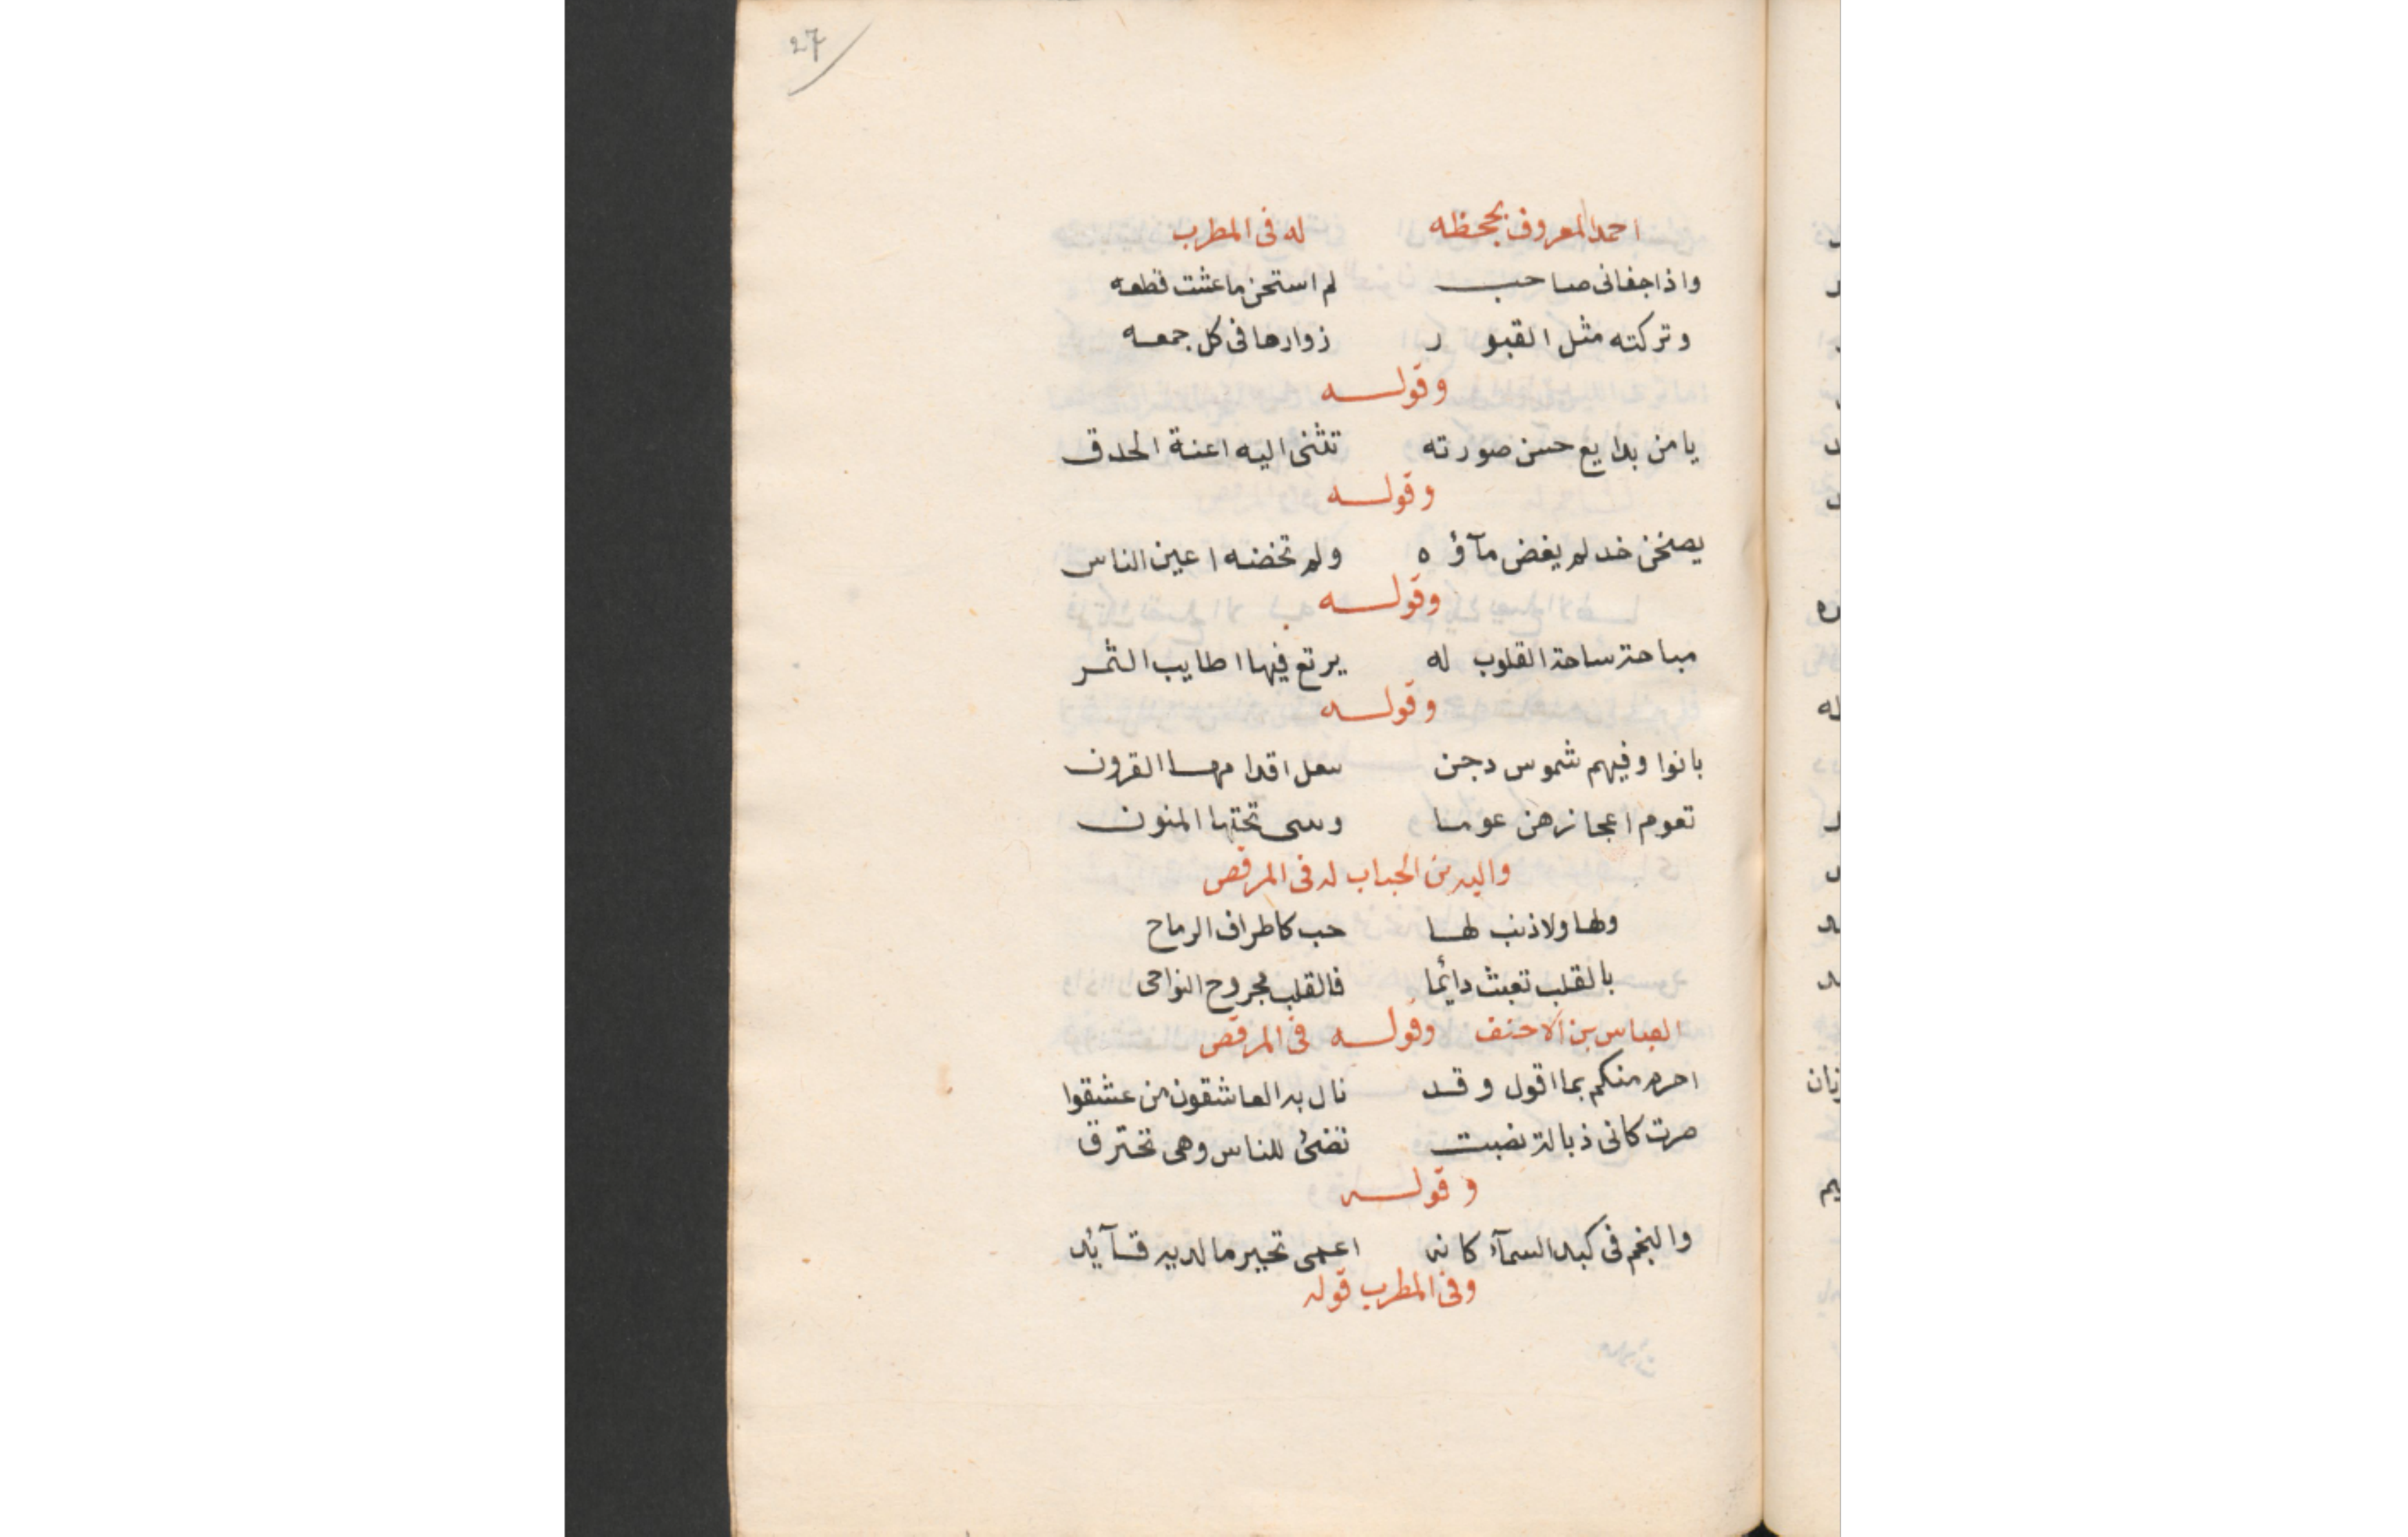 27
احمد المعروف بجحظه له فى المطرب
واذا جفانى صاحب لم استخن ما عشت قطعه
وتركته مثل القبور زوارها فى كل جمعه
وقوله
يا من بدايع حسن صورته تثنى اليه اعنة الحدق
وقوله
يصخن خد لم يغض مآؤه ولم تخضه اعين الناس
وقوله
مباحة ساحة القلوب له يرتع فيها اطايب الثمر
وقوله
بانوا وفيهم شموس دجن القرون
تقوم اعجازهن تحتها المنون
الحباب له فى المرقص
ولها ولا ذنب لها حب كاطراف الرماح
بالقلب تعبث دائما فالقلب مجروح النواحى
العباس بن الاحنف وقوله فى المرقص
احرم منكم بما اقول وقد نال به العاشقون من عشقوا
صرت كانى ذبالة نصبت تضئ للناس وهى تحترق
وقوله
والنجم فى كبد السمآء كانه اعمى تحير ما لديه قآئد
وفى المطرب قوله